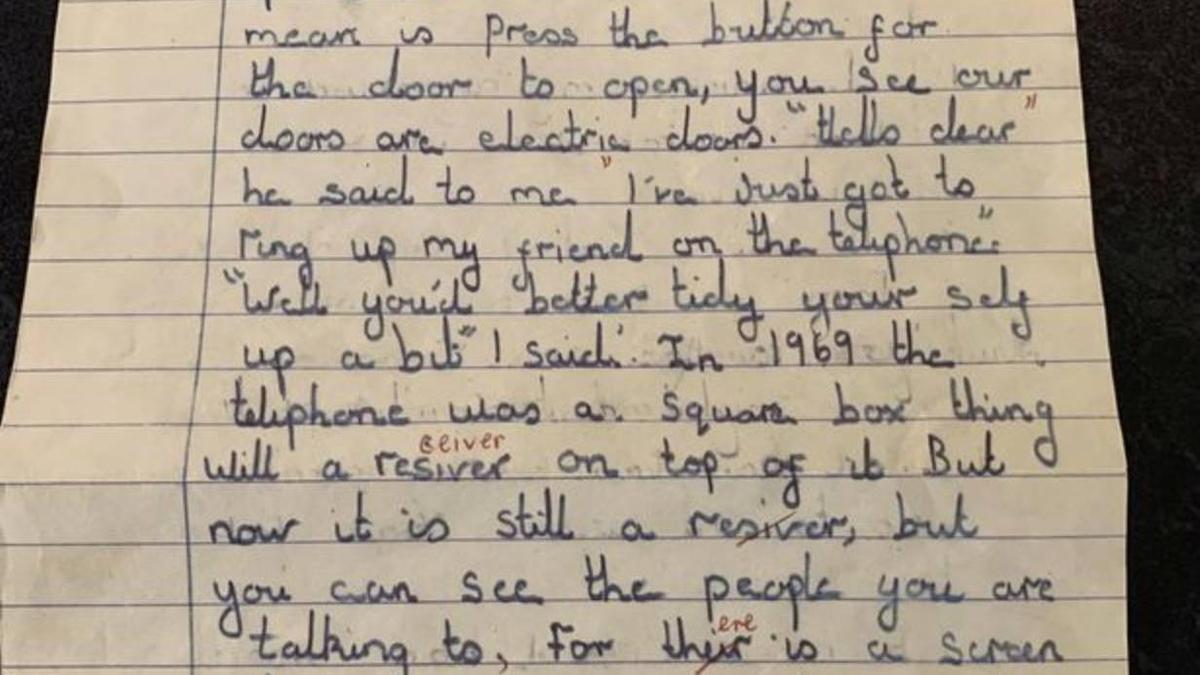 mean is press the button for
the door to open, you see our
doors are electric doors. "Hello dear"
he said to me "I've Just got to
ring up my friend on the teliphone".
"Well you'd better tidy your self
up a bit" I said. In 1969 the
teliphone was a square box thing
ceiver
will a resiver on top of it But
now it is still a resiver, but
you can see the people you are
ere
talking to, for their is a screen